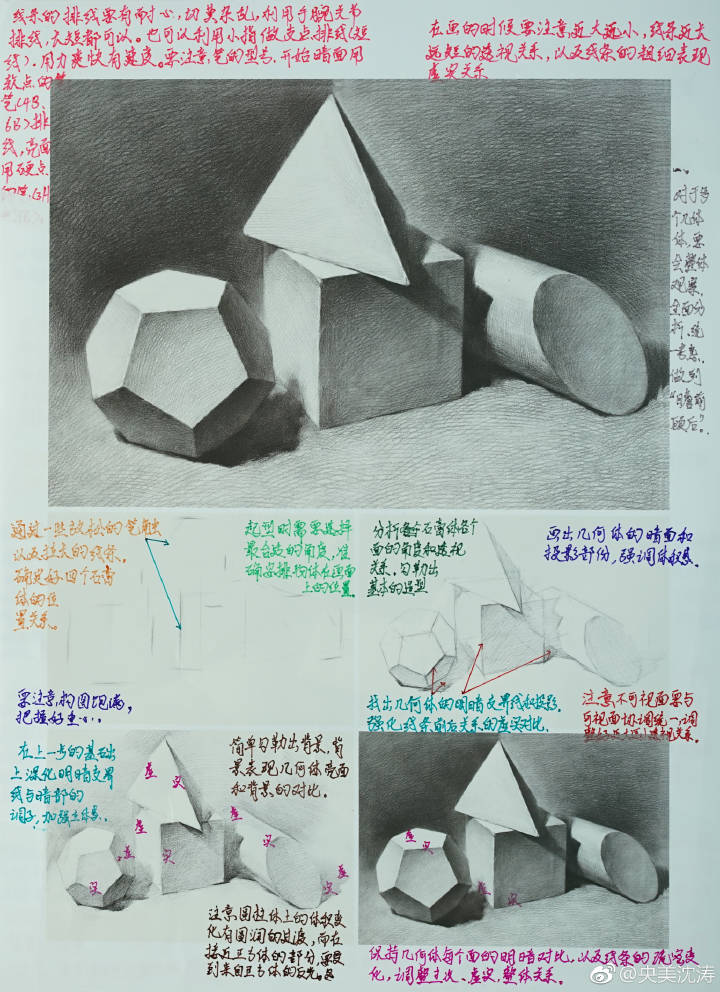 线条的排线要有耐心,切莫杂乱,利用手腕关节
排线,长短都可以。也可以利用小指做支点排线(短
线)。用力爽快有速度。要注意笔的型号,开始暗面用
软点的
笔(4B、
6B)排
线,亮面
用硬点
在画的时候要注意近大远小,线条近长
远短的透视关系,以及线条的粗细表现
虚实关系
对于多
个几何
体,要
会整体
观察,
全面分
析,统
一考虑,
做到
“瞻前
顾后”。
通过一些放松的笔触
以及拉长的线条。
确定好四个石膏
体的位
置关系。
起型时需要选择
最合适的角度,准
确安排物体在画面
上的位置。
要注意构图饱满,
把握好重心。
分析每个石膏体各个
面的角度和透视
关系,勾勒出
基本的造型
画出几何体的暗面和
投影部份,强调体积感。
找出几何体的明暗交界线和投影,
强化线条前后关系的虚实对比.
注意不可视面要与
可视面协调统一,调
在上一步的基础
上深化明暗交界
线与暗部的
调子,加强立体感.
简单勾勒出背景,背
景表现几何体亮面
和背景的对比.
虚 实
虚 实
虚 实
虚 实
虚 实
注意圆柱体上的体积变
化有圆润的过渡,而在
接近正方体的部分,要
到来自正方体的反光。
虚 实
虚 实
保持几何体每个面的明暗对比,以及线条的疏密变
化,调整主次、虚实,整体关系。
@央美沈涛